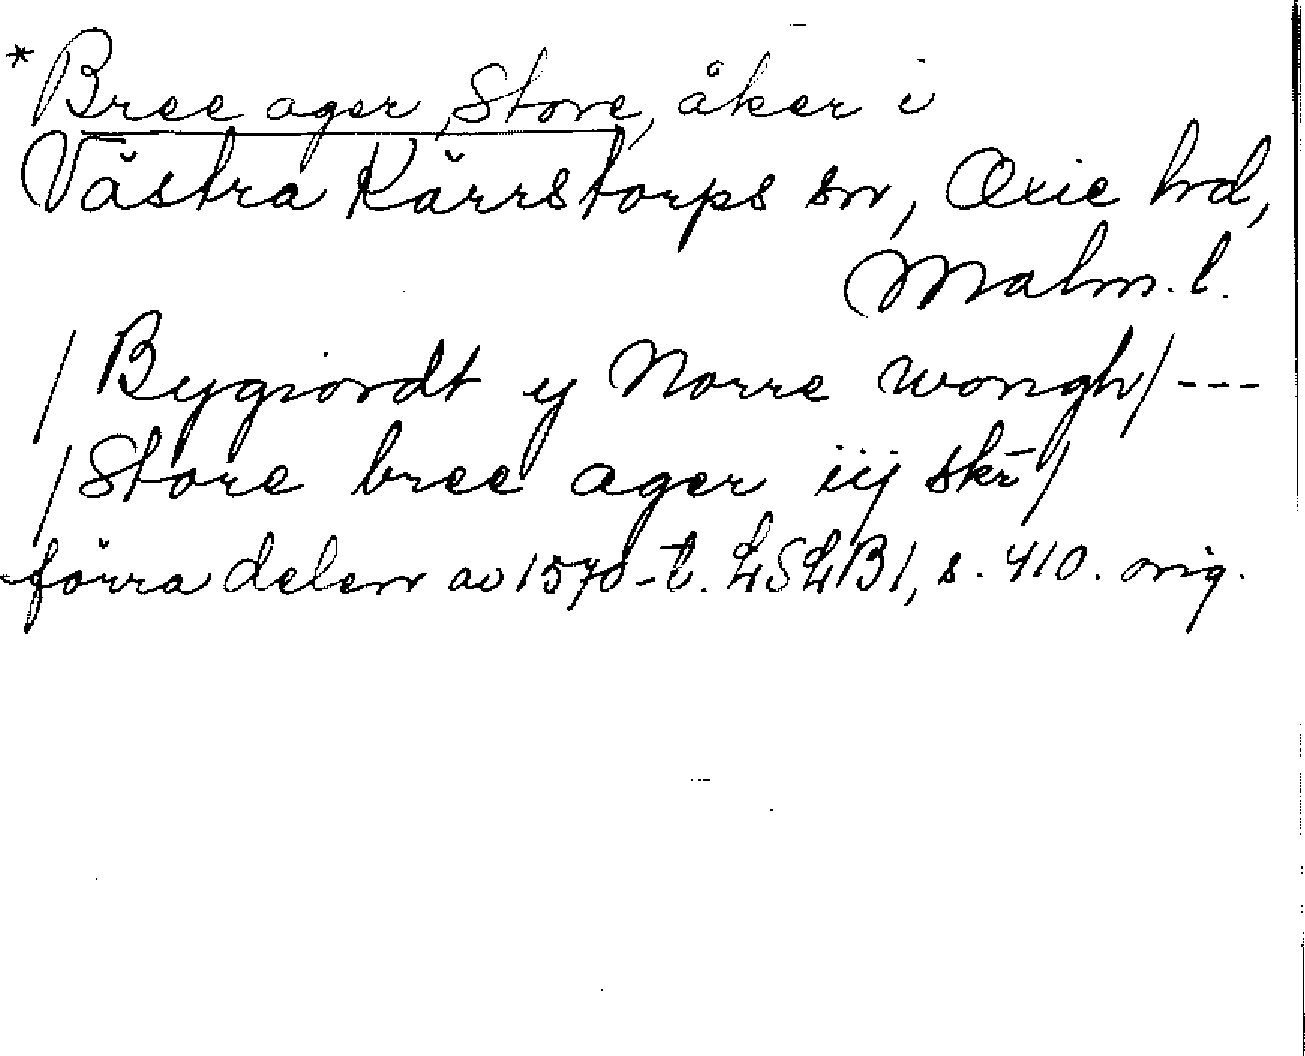 *Bree ager, Store, åker i
Västra Kärrstorps sn, Oxie hd,
Malm. l.
/Bygiordt y Norre wongh/ ---
/Store bree ager iij skr̄/
förra delen av 1570-t. LSLB1, s. 410. orig.